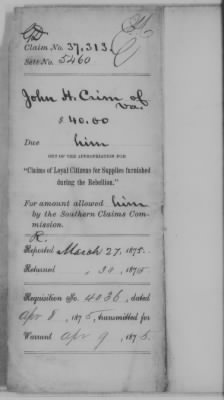 Claim No. 37,313
Sett No. 5460
John H. Crim of
Va.
$ 40.00
Due him
OUT OF THE APPROPRIATION FOR
"Claims of Loyal Citizens for Supplies furnished
during the Rebellion."
For amount allowed him
by the Southern Claims Com-
mission.
R.
Reported March 27, 1875.
Returned " 30, 1875
Requisition No. 4036, dated
Apr 8, 1875, transmitted for
Warrant Apr 9, 1875.